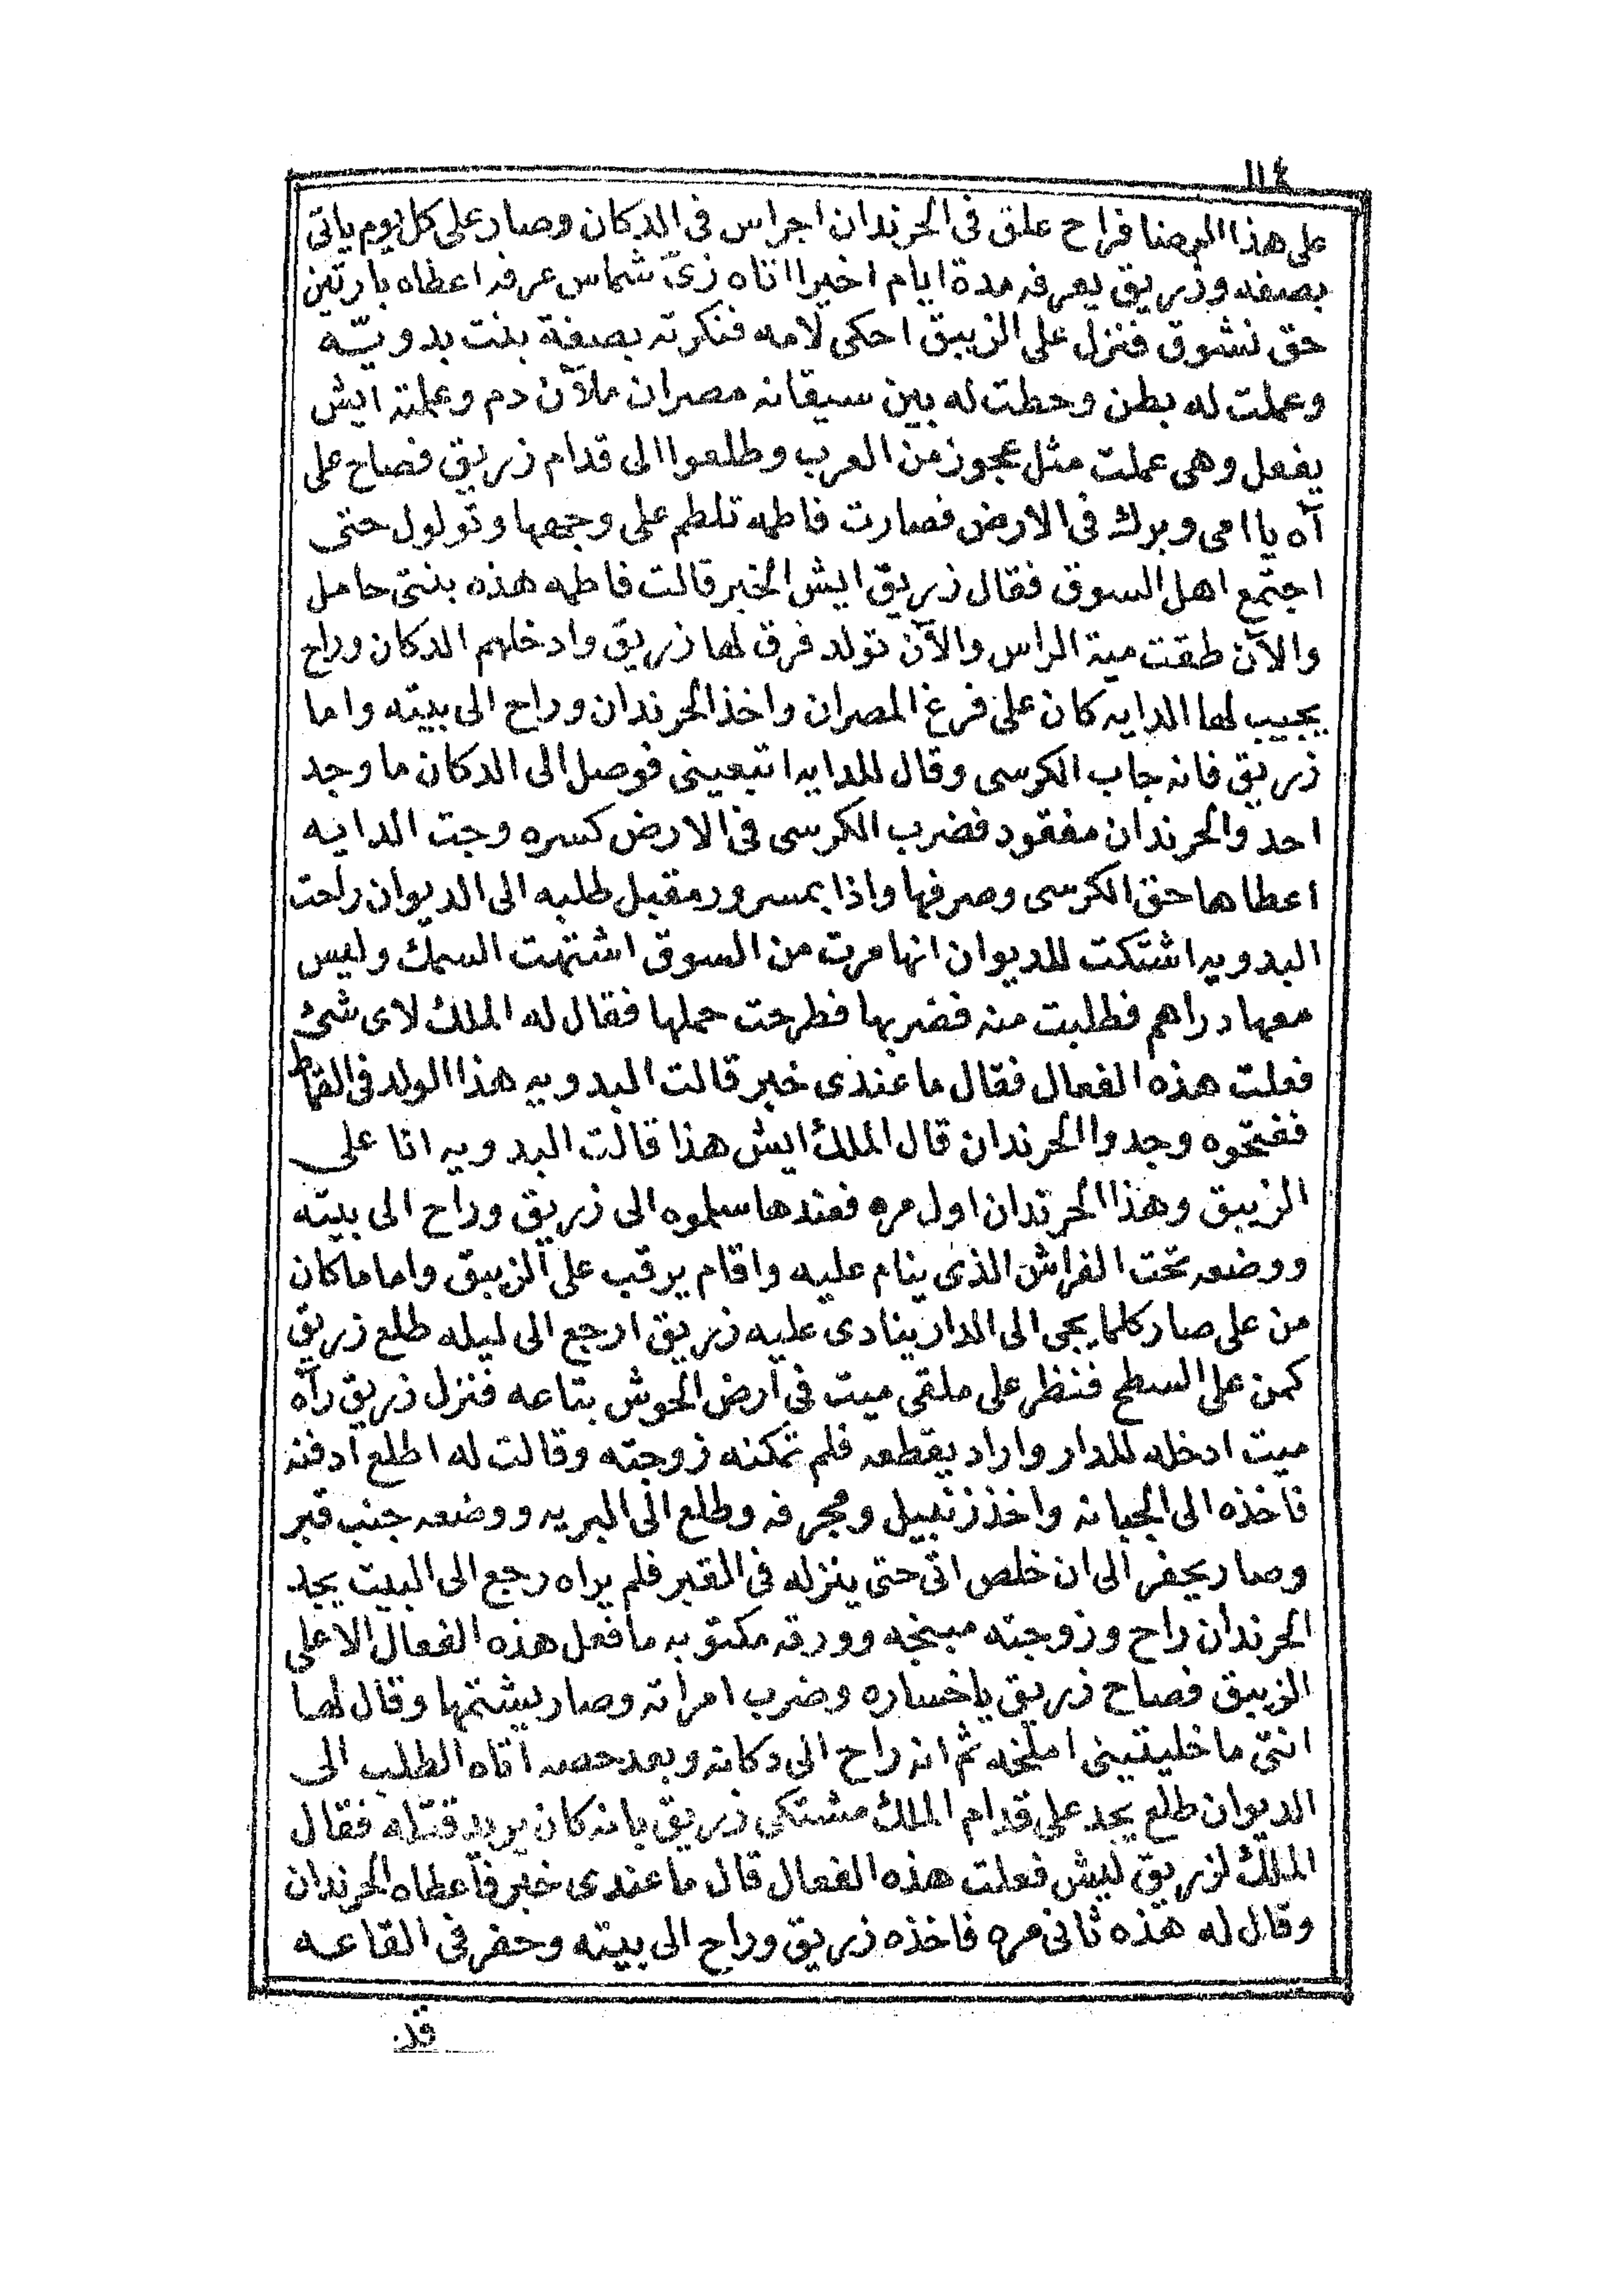 ١١٤
على هذا الرضا فراح علق فى الحرندان اجراس فى الدكان وصار على كل يوم ياتى
بصفه وزريق يعرفه مدة ايام اخيرا اتاه زىّ شماس عرفه اعطاه بارتين
حق نشوق فنزل على الزيبق احكى لامه فنكرته بصفة بنت بدويّه
وعملت له بطن وحطت له بين سيقانه مصران ملآن دم وعلمته ايش
يفعل وهى عملت مثل عجوز من العرب وطلعوا الى قدام زريق فصاح على
آه يا امى وبرك فى الارض فصارت فاطمه تلطم على وجهها وتولول حتى
اجتمع اهل السوق فقال زريق ايش الخبر قالت فاطمه هذه بنتى حامل
والآن طقت مية الراس والآن تولد فرق لها زريق وادخلهم الدكان وراح
يجيب لها الدايه كان على فرغ المصران واخذ الحرندان وراح الى بيته واما
زريق فانه جاب الكرسى وقال للدايه اتبعينى فوصل الى الدكان ما وجد
احد والحرندان مفقود فضرب الكرسى فى الارض كسره وجت الدايه
اعطاها حق الكرسى وصرفها واذا بمسرور مقبل طلبه الى الديوان راحت
البدويه اشتكت للديوان انها مرت من السوق اشتهت السمك وليس
معها دراهم فطلبت منه فضربها فطرحت حملها فقال له الملك لاى شئ
فعلت هذه الفعال فقال ما عندى خبر قالت البدويه هذا الولد فى القماط
ففتحوه وجدوا الحرندان قال الملك ايش هذا قالت البدويه انا على
الزيبق وهذا الحرندان اول مره فعندها سلموه الى زريق وراح الى بيته
ووضعه تحت الفراش الذى ينام عليه واقام يرقب على الزيبق واما ما كان
من على صار كلما يجى الى الدار ينادى عليه زريق ارجع الى ليله طلع زريق
كمن على السطح فنظر على ملقى ميت فى ارض الحوش بتاعه فنزل زريق رآه
ميت ادخله للدار واراد يقطعه فلم تمكنه زوجته وقالت له اطلع ادفنه
فاخذه الى الجبانه واخذ زنبيل ومجرفه وطلع الى البريه ووضعه جنب قبر
وصار يحفر الى ان خلص اتى حتى ينزله فى القبر فلم يراه رجع الى البيت يجد
الحرندان راح وزوجته مبنجه وورقه مكتوبه ما فعل هذه الفعال الا على
الزيبق فصاح زريق يا خساره وضرب امراته وصار يشتمها وقال لها
انتى ما خليتينى املخه ثم انه راح الى دكانه وبعد حصه اتاه الطلب الى
الديوان طلع يجد على قدام الملك مشتكى زريق بانه كان يريد قتله فقال
الملك لزريق ليش فعلت هذه الفعال قال ما عندى خبر فاعطاه الحرندان
وقال له هذه ثانى مره فاخذه زريق وراح الى بيته وحفر فى القاعه